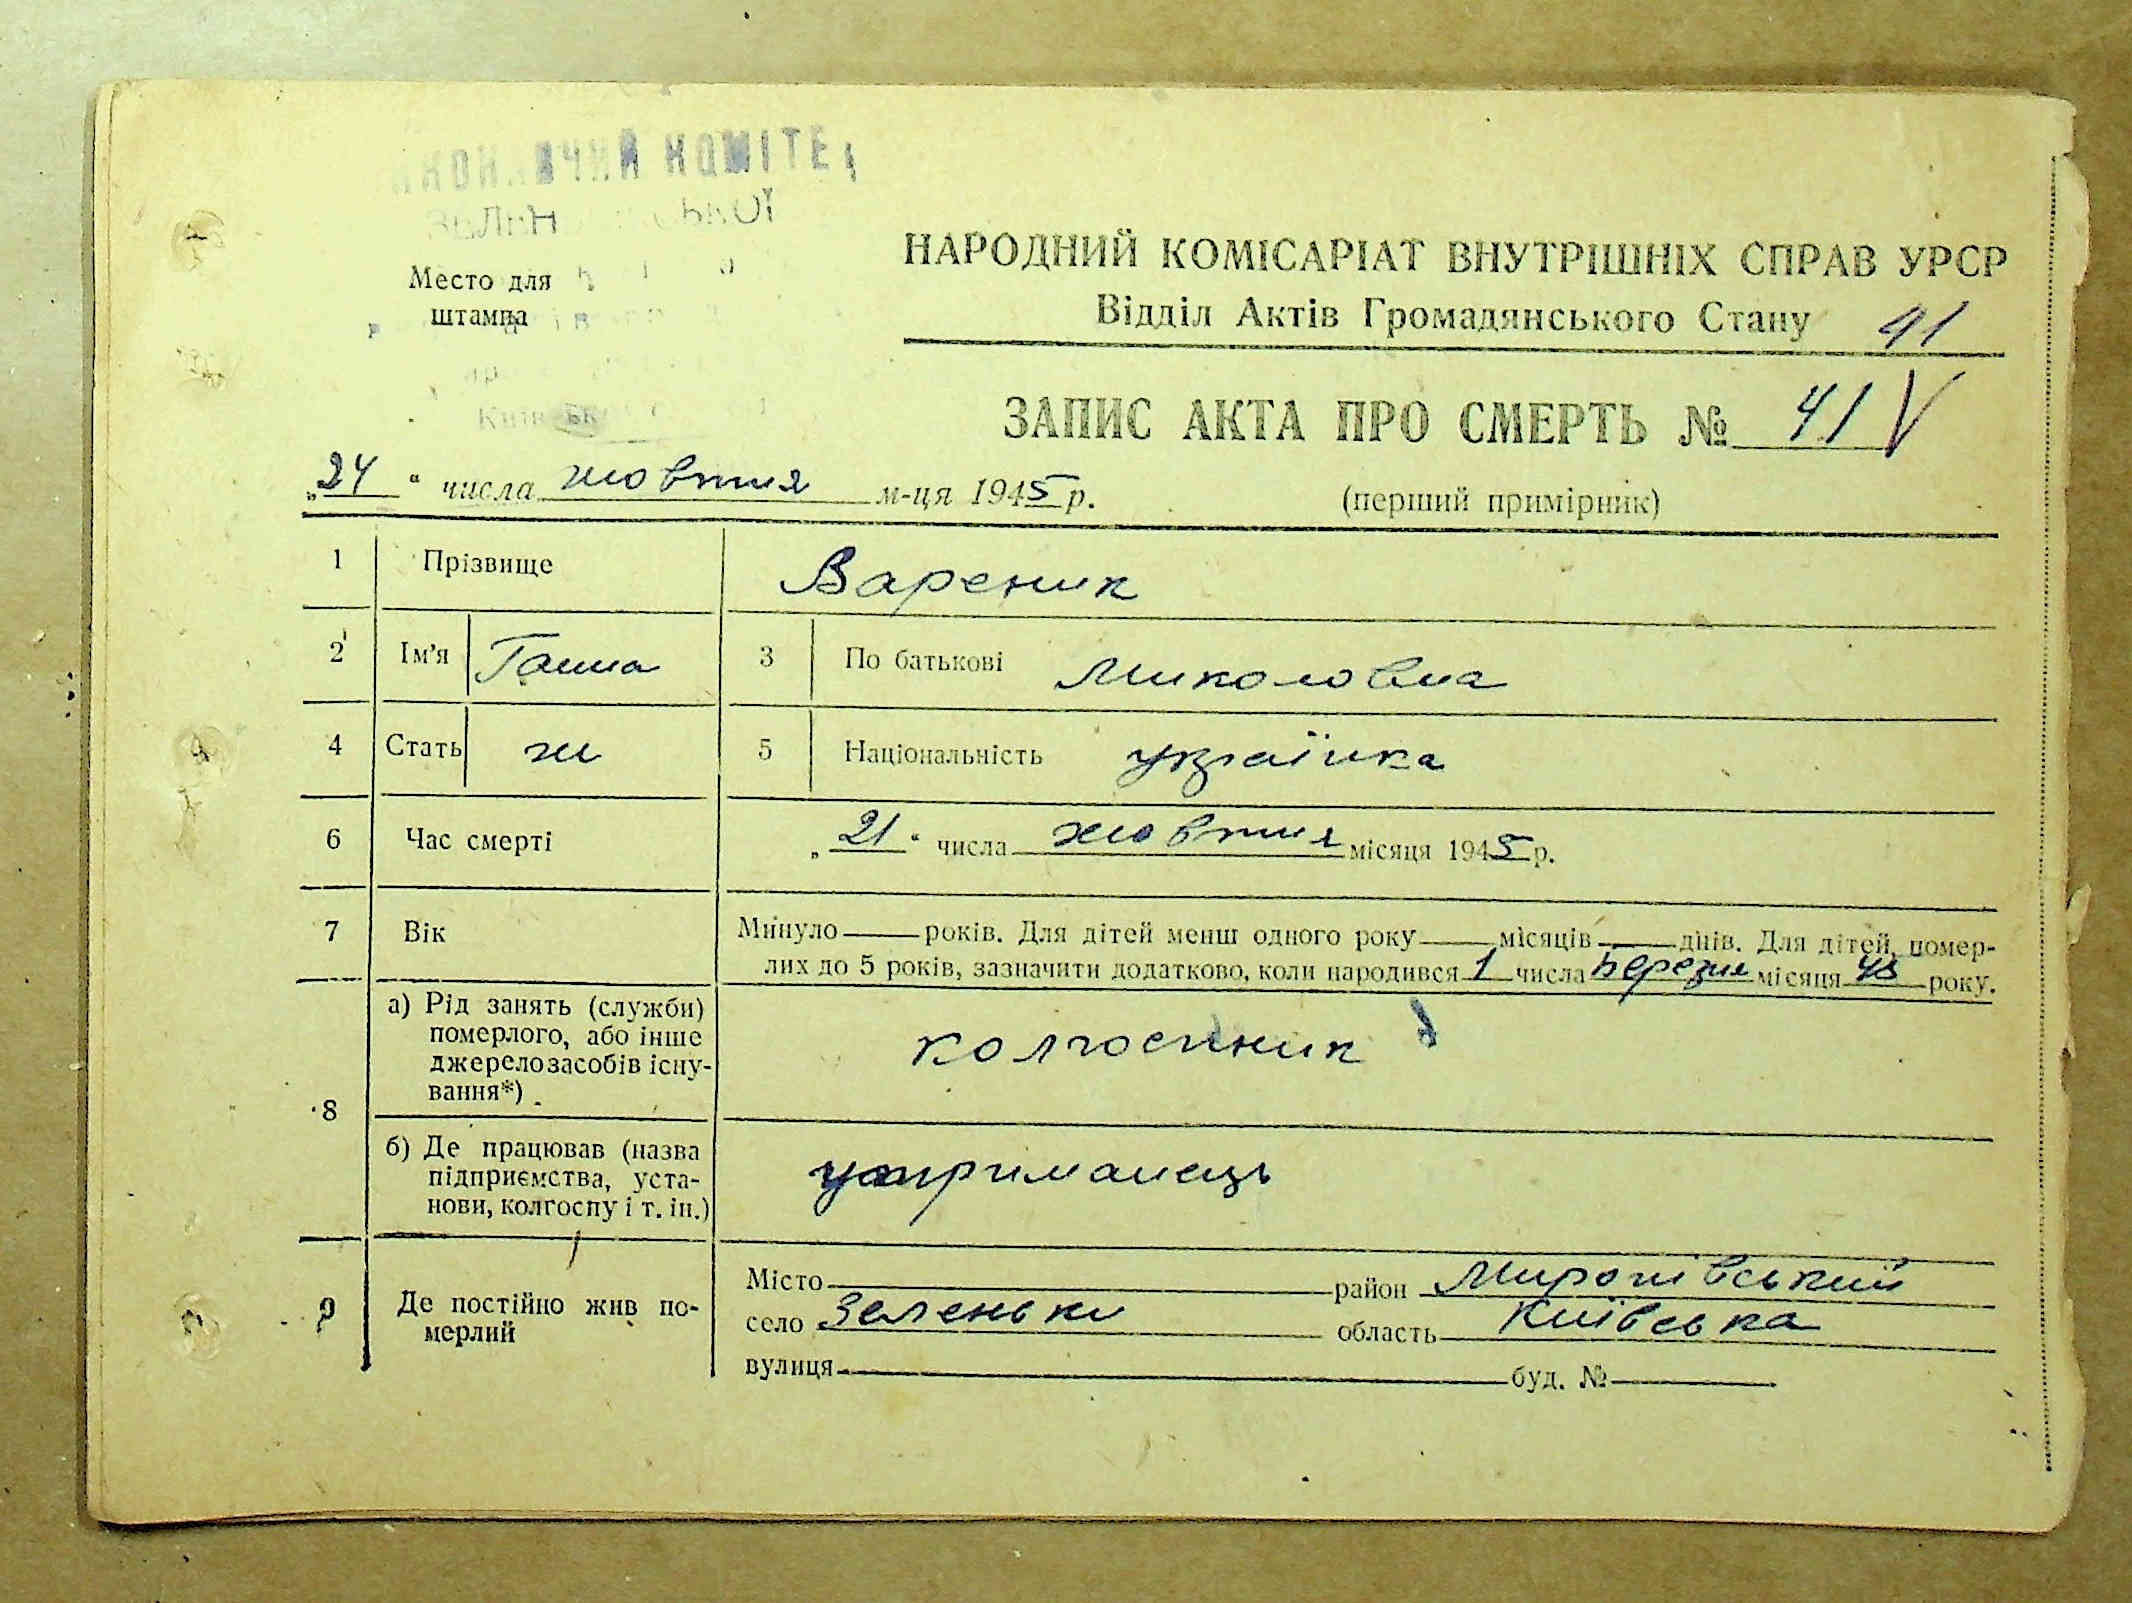 КОМІТЕ
Место для
штампа
НАРОДНИЙ КОМІСАРІАТ ВНУТРІШНІХ СПРАВ УРСР
Відділ Актів Громадянського Стану 41
ЗАПИС АКТА ПРО СМЕРТЬ № 41 V
„24" числа жовтня м-ця 1945 р. (перший примірник)
1 Прізвище Вареник
2 Ім'я Ганна 3 По батькові Миколовна
4 Стать ж 5 Національність українка
6 Час смерті „21" числа жовтня місяця 1945 р.
7 Вік Минуло — років. Для дітей менш одного року — місяців — днів. Для дітей, помер-
лих до 5 років, зазначити додатково, коли народився 1 числа березня місяця 43 року.
8 а) Рід занять (служби)
померлого, або інше
джерело засобів існу-
вання*)
колгоспник
б) Де працював (назва
підприємства, уста-
нови, колгоспу і т. ін.)
утриманець
9 Де постійно жив по-
мерлий
Місто — район Миронівський
село Зеленьки область Київська
вулиця — буд. № —